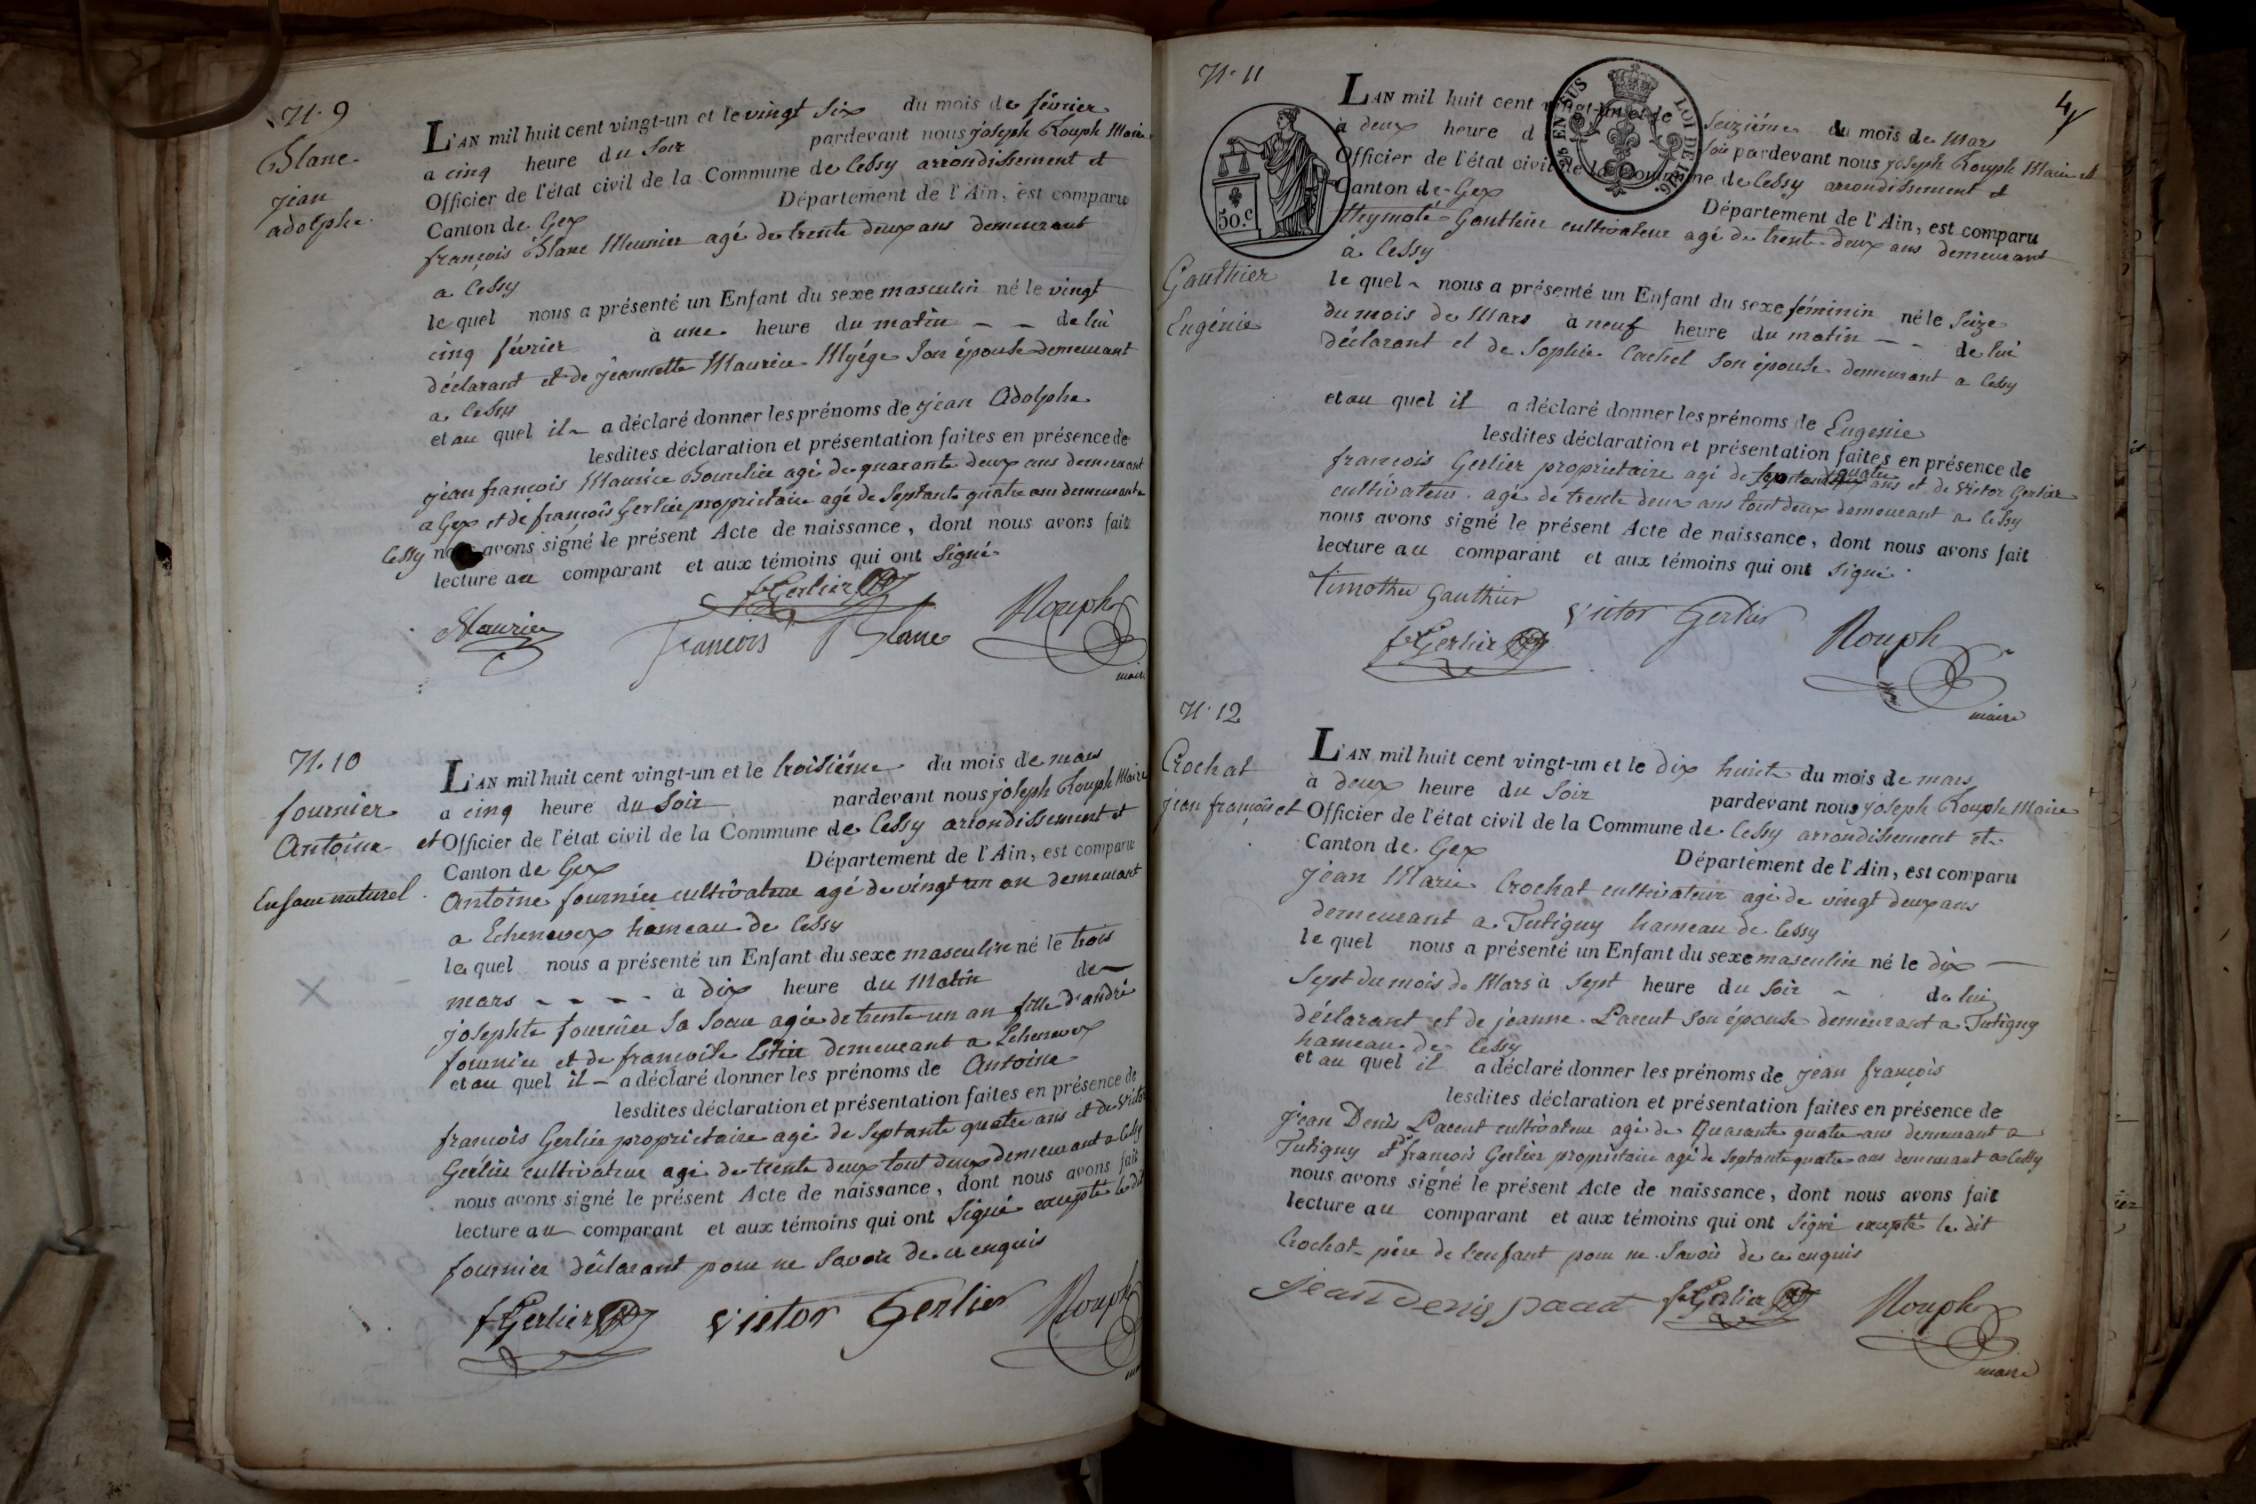 N.° 9
Blanc
jean
adolphe.
L'AN mil huit cent vingt-un et le vingt Six du mois de février
a cinq heure du Soir pardevant nous joseph Rouph Maire
Officier de l'état civil de la Commune de Cessy arrondissement et
Canton de Gex Département de l'Ain, est comparu
françois Blanc Meunier agé de trente deux ans demeurant
a Cessy
le quel nous a présenté un Enfant du sexe masculin né le vingt
cinq février à une heure du matin de lui
déclarant et de jeannette Maurice Myége Son épouse demeurant
a Cessy
et au quel il a déclaré donner les prénoms de jean Adolphe
lesdites déclaration et présentation faites en présence de
jean françois Maurice Bourelier agé de quarante deux ans demeurant
a Gex et de françois Gerlier proprietaire agé de Septante quatre ans demeurant a
Cessy nous avons signé le présent Acte de naissance, dont nous avons fait
lecture au comparant et aux témoins qui ont Signé
fs Gerlier
Maurice François Blanc Rouph
maire
N.° 10
fournier
Antoine
Enfant naturel
L'AN mil huit cent vingt-un et le troisiéme du mois de mars
a cinq heure du Soir pardevant nous joseph Rouph Maire
et Officier de l'état civil de la Commune de Cessy arrondissement et
Canton de Gex Département de l'Ain, est comparu
Antoine fournier cultivateur agé de vingt un an demeurant
a Echenevex hameau de Cessy
le quel nous a présenté un Enfant du sexe masculin né le trois
mars à dix heure du Matin de
josephte fournier Sa Soeur agée de trente-un an fille d'andré
fournier et de françoise Estier demeurant a Echenevex
et au quel il a déclaré donner les prénoms de Antoine
lesdites déclaration et présentation faites en présence de
françois Gerlier proprietaire agé de Septante quatre ans et de Victor
Gerlier cultivateur agé de trente deux tout deux demeurant a Cessy
nous avons signé le présent Acte de naissance, dont nous avons fait
lecture au comparant et aux témoins qui ont Signé excepté le dit
fournier déclarant pour ne Savoir de ce enquis
fs Gerlier Victor Gerlier Rouph
N.° 11
4
50.c
25 EN SUS
LOI DE 1816
Gauthier
Eugénie
L'AN mil huit cent vingt-un et le Seiziéme du mois de Mars
à deux heure du Soir pardevant nous joseph Rouph Maire et
Officier de l'état civil de la Commune de Cessy arrondissement et
Canton de Gex Département de l'Ain, est comparu
Thymoté Gauthier cultivateur agé de trente-deux ans demeurant
à Cessy
le quel nous a présenté un Enfant du sexe féminin né le Seize
du mois de Mars à neuf heure du matin de lui
déclarant et de Sophie Cachel Son épouse demeurant a Cessy
et au quel il a déclaré donner les prénoms de Eugenie
lesdites déclaration et présentation faites en présence de
françois Gerlier proprietaire agé de Septante quatre ans et de Victor Gerlier
cultivateur agé de trente deux ans tout deux demeurant a Cessy
nous avons signé le présent Acte de naissance, dont nous avons fait
lecture au comparant et aux témoins qui ont Signé
Timothee Gauthier Victor Gerlier
fs Gerlier Rouph
maire
N.° 12
Crochat
jean françois
L'AN mil huit cent vingt-un et le dix huit du mois de mars
à deux heure du Soir pardevant nous joseph Rouph Maire
et Officier de l'état civil de la Commune de Cessy arrondissement et
Canton de Gex Département de l'Ain, est comparu
jean Marie Crochat cultivateur agé de vingt deux ans
demeurant a Tutigny hameau de Cessy
le quel nous a présenté un Enfant du sexe masculin né le dix
Sept du mois de Mars à Sept heure du Soir de lui
déclarant et de jeanne Paccut Son épouse demeurant a Tutigny
hameau de Cessy
et au quel il a déclaré donner les prénoms de jean françois
lesdites déclaration et présentation faites en présence de
jean Denis Paccut cultivateur agé de Quarante quatre ans demeurant a
Tutigny et de françois Gerlier proprietaire agé de Septante quatre ans demeurant a Cessy
nous avons signé le présent Acte de naissance, dont nous avons fait
lecture au comparant et aux témoins qui ont Signé excepté le dit
Crochat père de l'enfant pour ne Savoir de ce enquis
jean Denis pacut fs Gerlier Rouph
maire